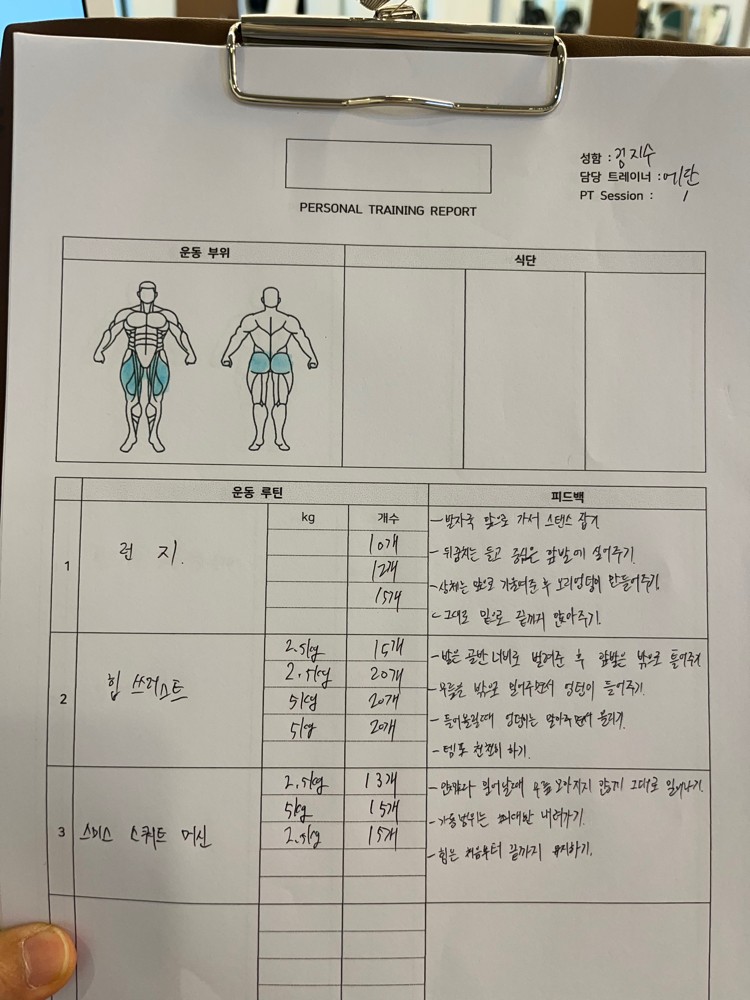 성함 : 김지수
담당 트레이너 : 에단
PT Session : 1
PERSONAL TRAINING REPORT
운동 부위 식단
운동 루틴 피드백
kg 개수
1 런지.
10개
12개
15개
- 발자국 앞으로 가서 스텐스 잡기
- 뒤꿈치는 들고 중심은 앞발에 실어주기.
- 상체는 앞으로 기울여준 후 오리엉덩이 만들어주기.
- 그대로 밑으로 끝까지 앉아주기.
2 힙 쓰러스트
2.5kg 15개
2.5kg 20개
5kg 20개
5kg 20개
- 발은 골반 너비로 벌려준 후 앞발은 밖으로 틀어주기
- 무릎을 밖으로 밀어주면서 엉덩이 들어주기.
- 들어올릴때 엉덩이는 말아주면서 올리기.
- 템포 천천히 하기.
3 스미스 스쿼트 머신
2.5kg 13개
5kg 15개
2.5kg 15개
- 앉았다 일어날때 무릎 모아지지 않게 그대로 일어나기.
- 가동범위는 최대한 내려가기.
- 힘은 처음부터 끝까지 유지하기.